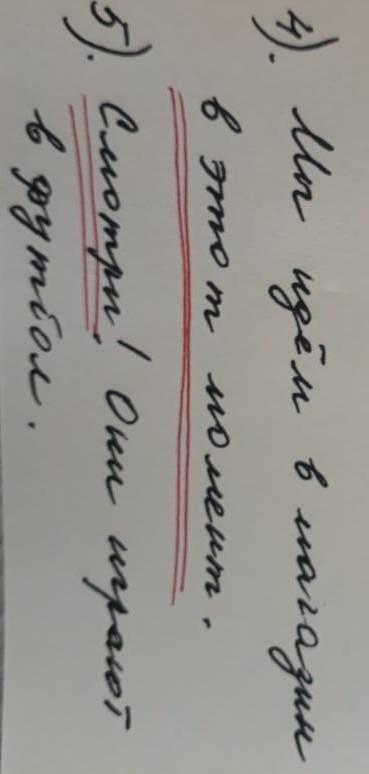 4). Мы идём в магазин
в этот момент.
5). Смотри! Они играют
в футбол.